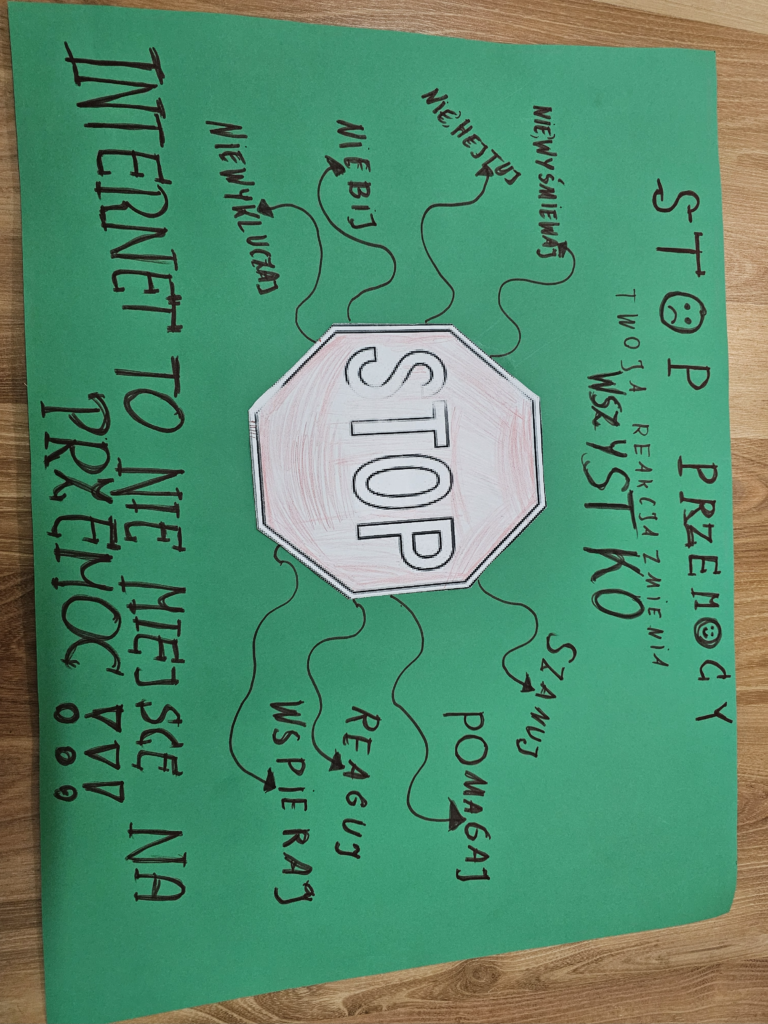 STOP PRZEMOCY
TWOJA REAKCJA ZMIENIA
WSZYSTKO
NIEWYŚMIEWAJ
NIEHEJTUJ
NIEBIJ
NIEWYKLUCZAJ
STOP
SZANUJ
POMAGAJ
REAGUJ
WSPIERAJ
INTERNET TO NIE MIEJSCE NA
PRZEMOC !!!